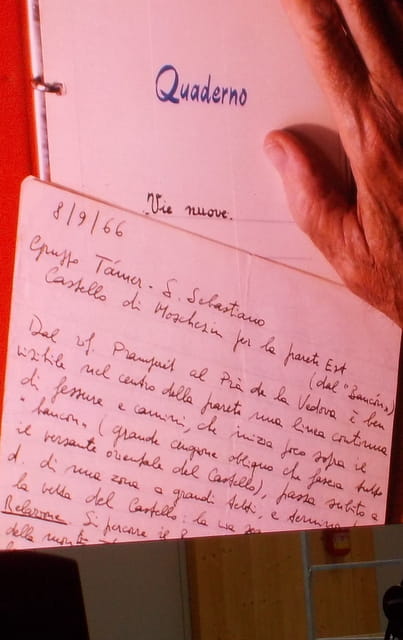 Quaderno
Vie nuove.
8/9/66
Gruppo Támer - S. Sebastiano
Castello di Moschesin per la parete Est
(dal "Bancón")
Dal rif. Pramperet al Prà de la Vedova è ben
visibile nel centro della parete una linea continua
di fessure e camini, che inizia poco sopra il
"bancon" (grande cengione obliquo che fascia tutto
il versante orientale del Castello), passa subito a
d. di una zona a grandi tetti e termina
la vetta del Castello: la via
Relazione. Si percorre il
della